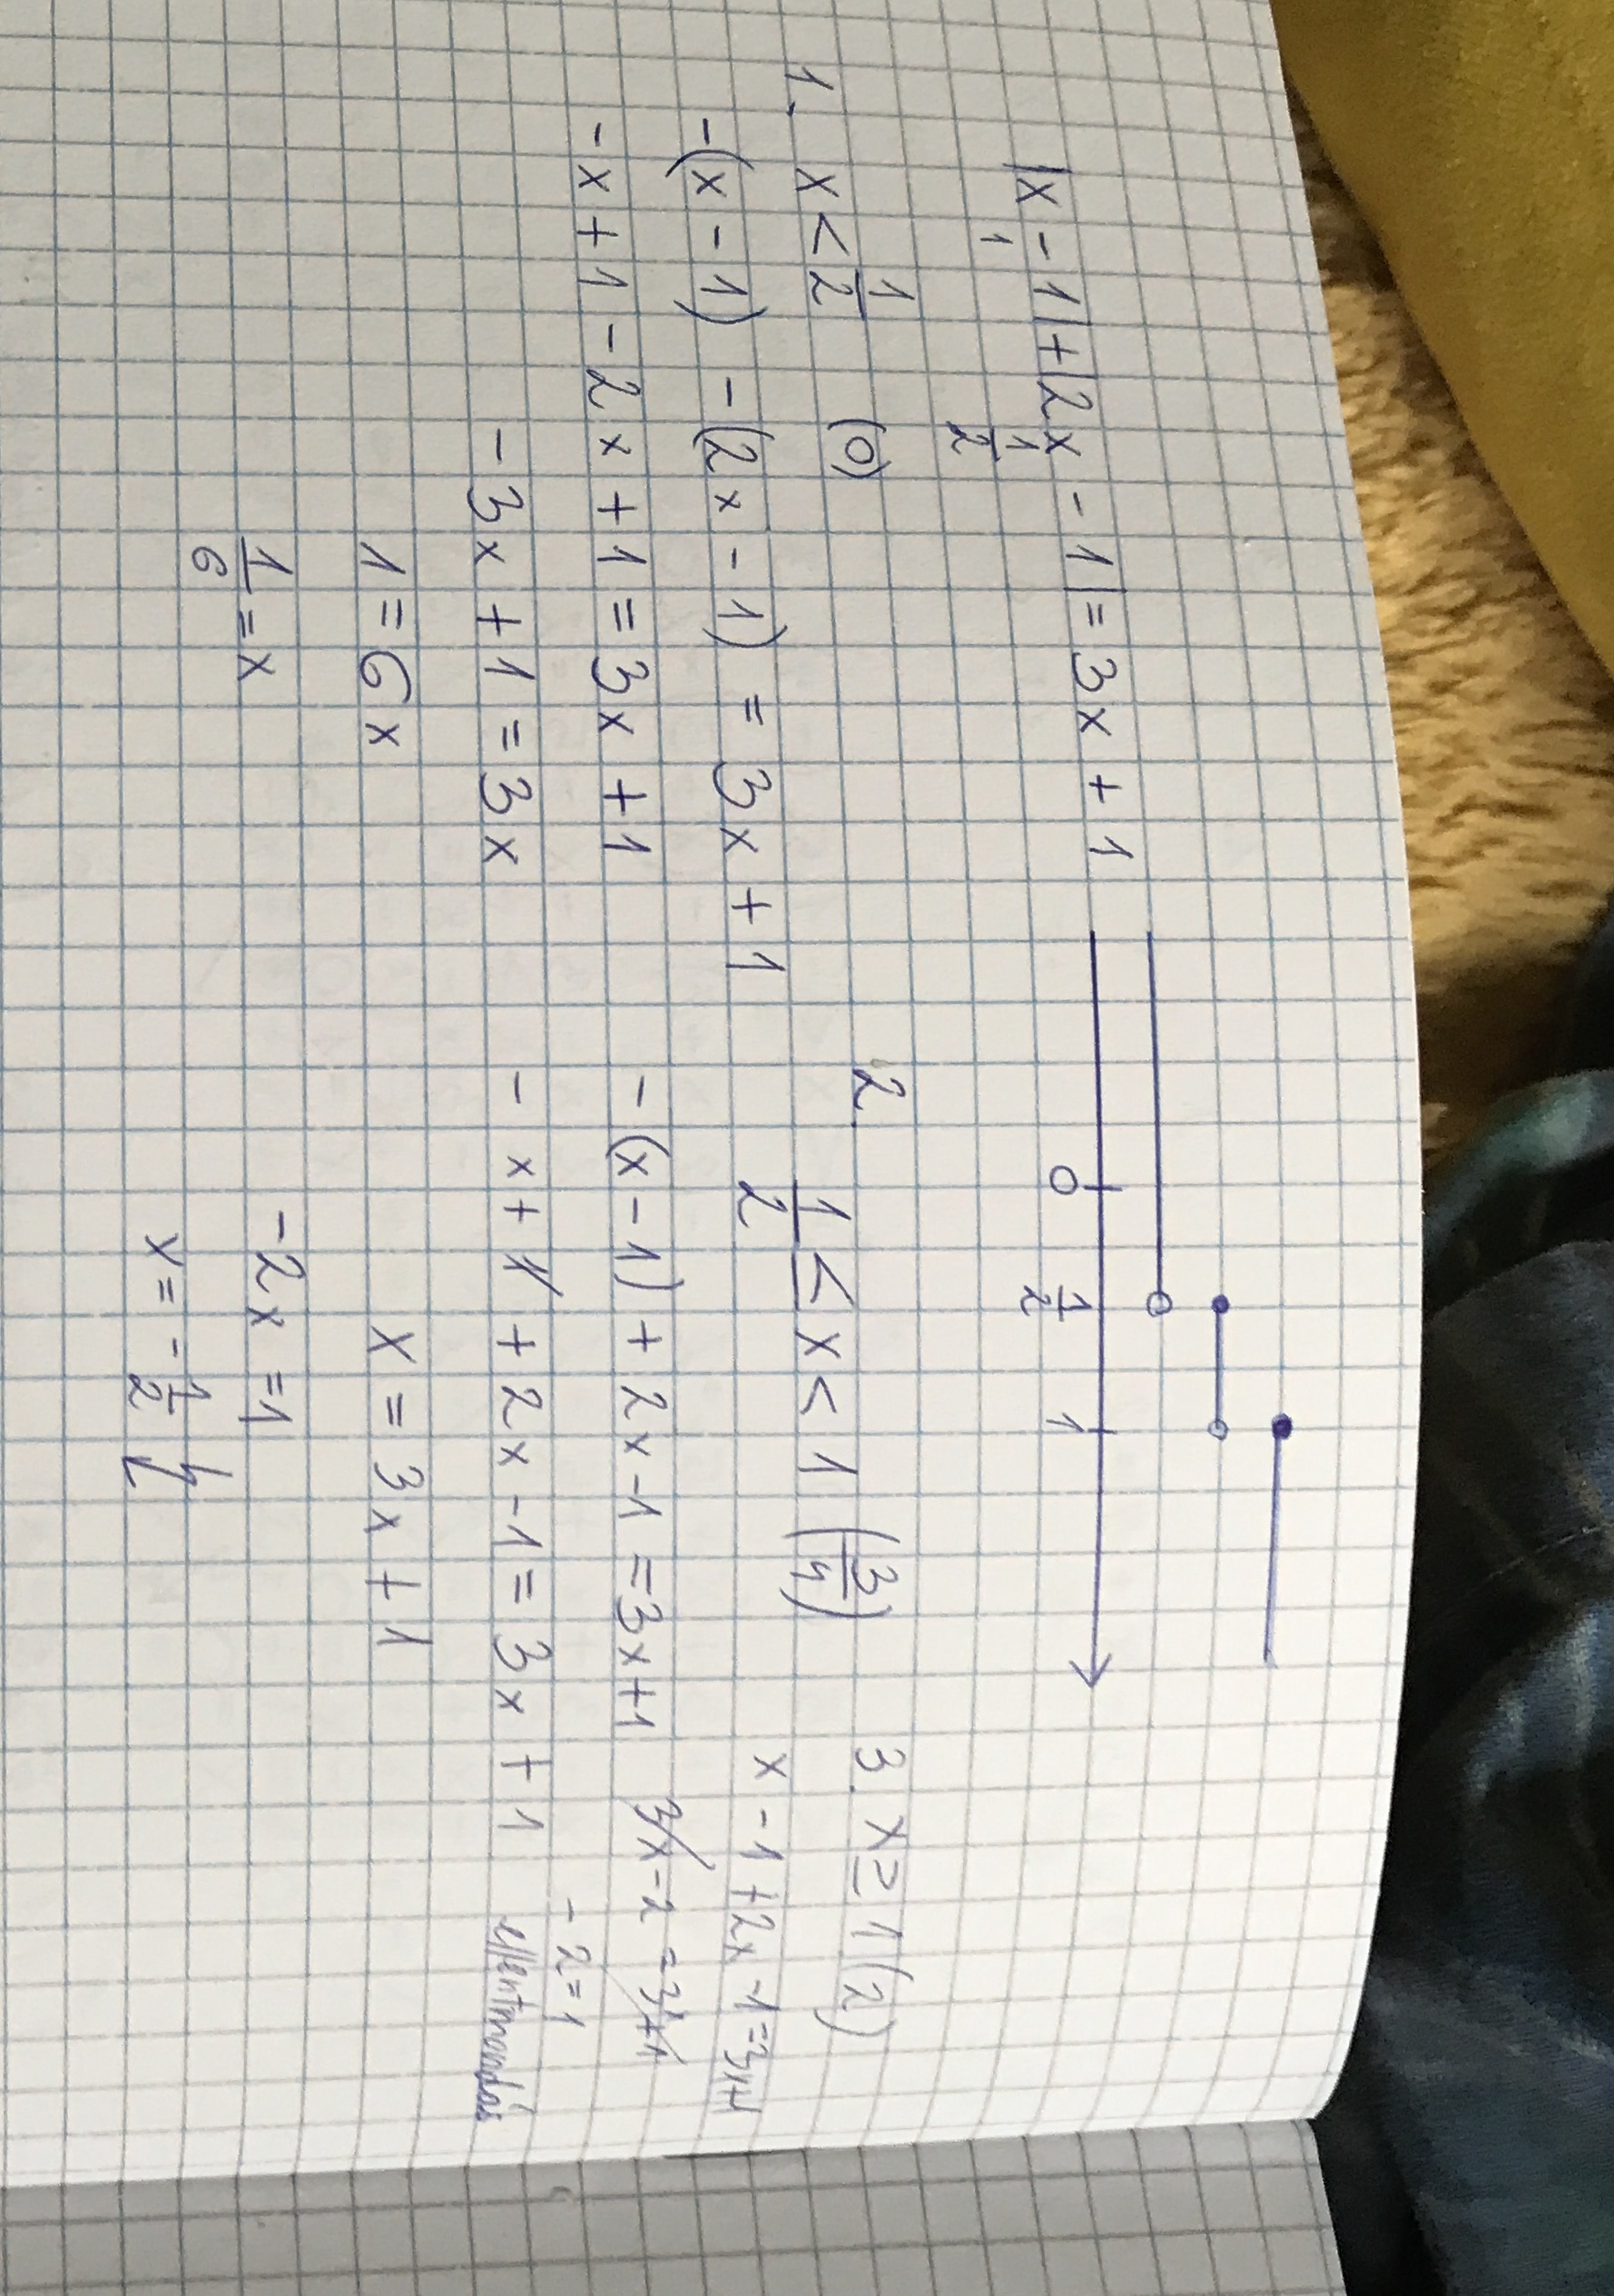 |x - 1| + |2x - 1| = 3x + 1
1 1/2
0 1/2 1
1. x < 1/2 (0)
-(x - 1) - (2x - 1) = 3x + 1
-x + 1 - 2x + 1 = 3x + 1
-3x + 1 = 3x
1 = 6x
1/6 = x
2. 1/2 ≤ x < 1 (3/4)
-(x - 1) + 2x - 1 = 3x + 1
-x + 1 + 2x - 1 = 3x + 1
x = 3x + 1
-2x = 1
x = -1/2 ↯
3. x ≥ 1 (2)
x - 1 + 2x - 1 = 3x + 1
3x - 2 = 3x + 1
-2 = 1
ellentmondás